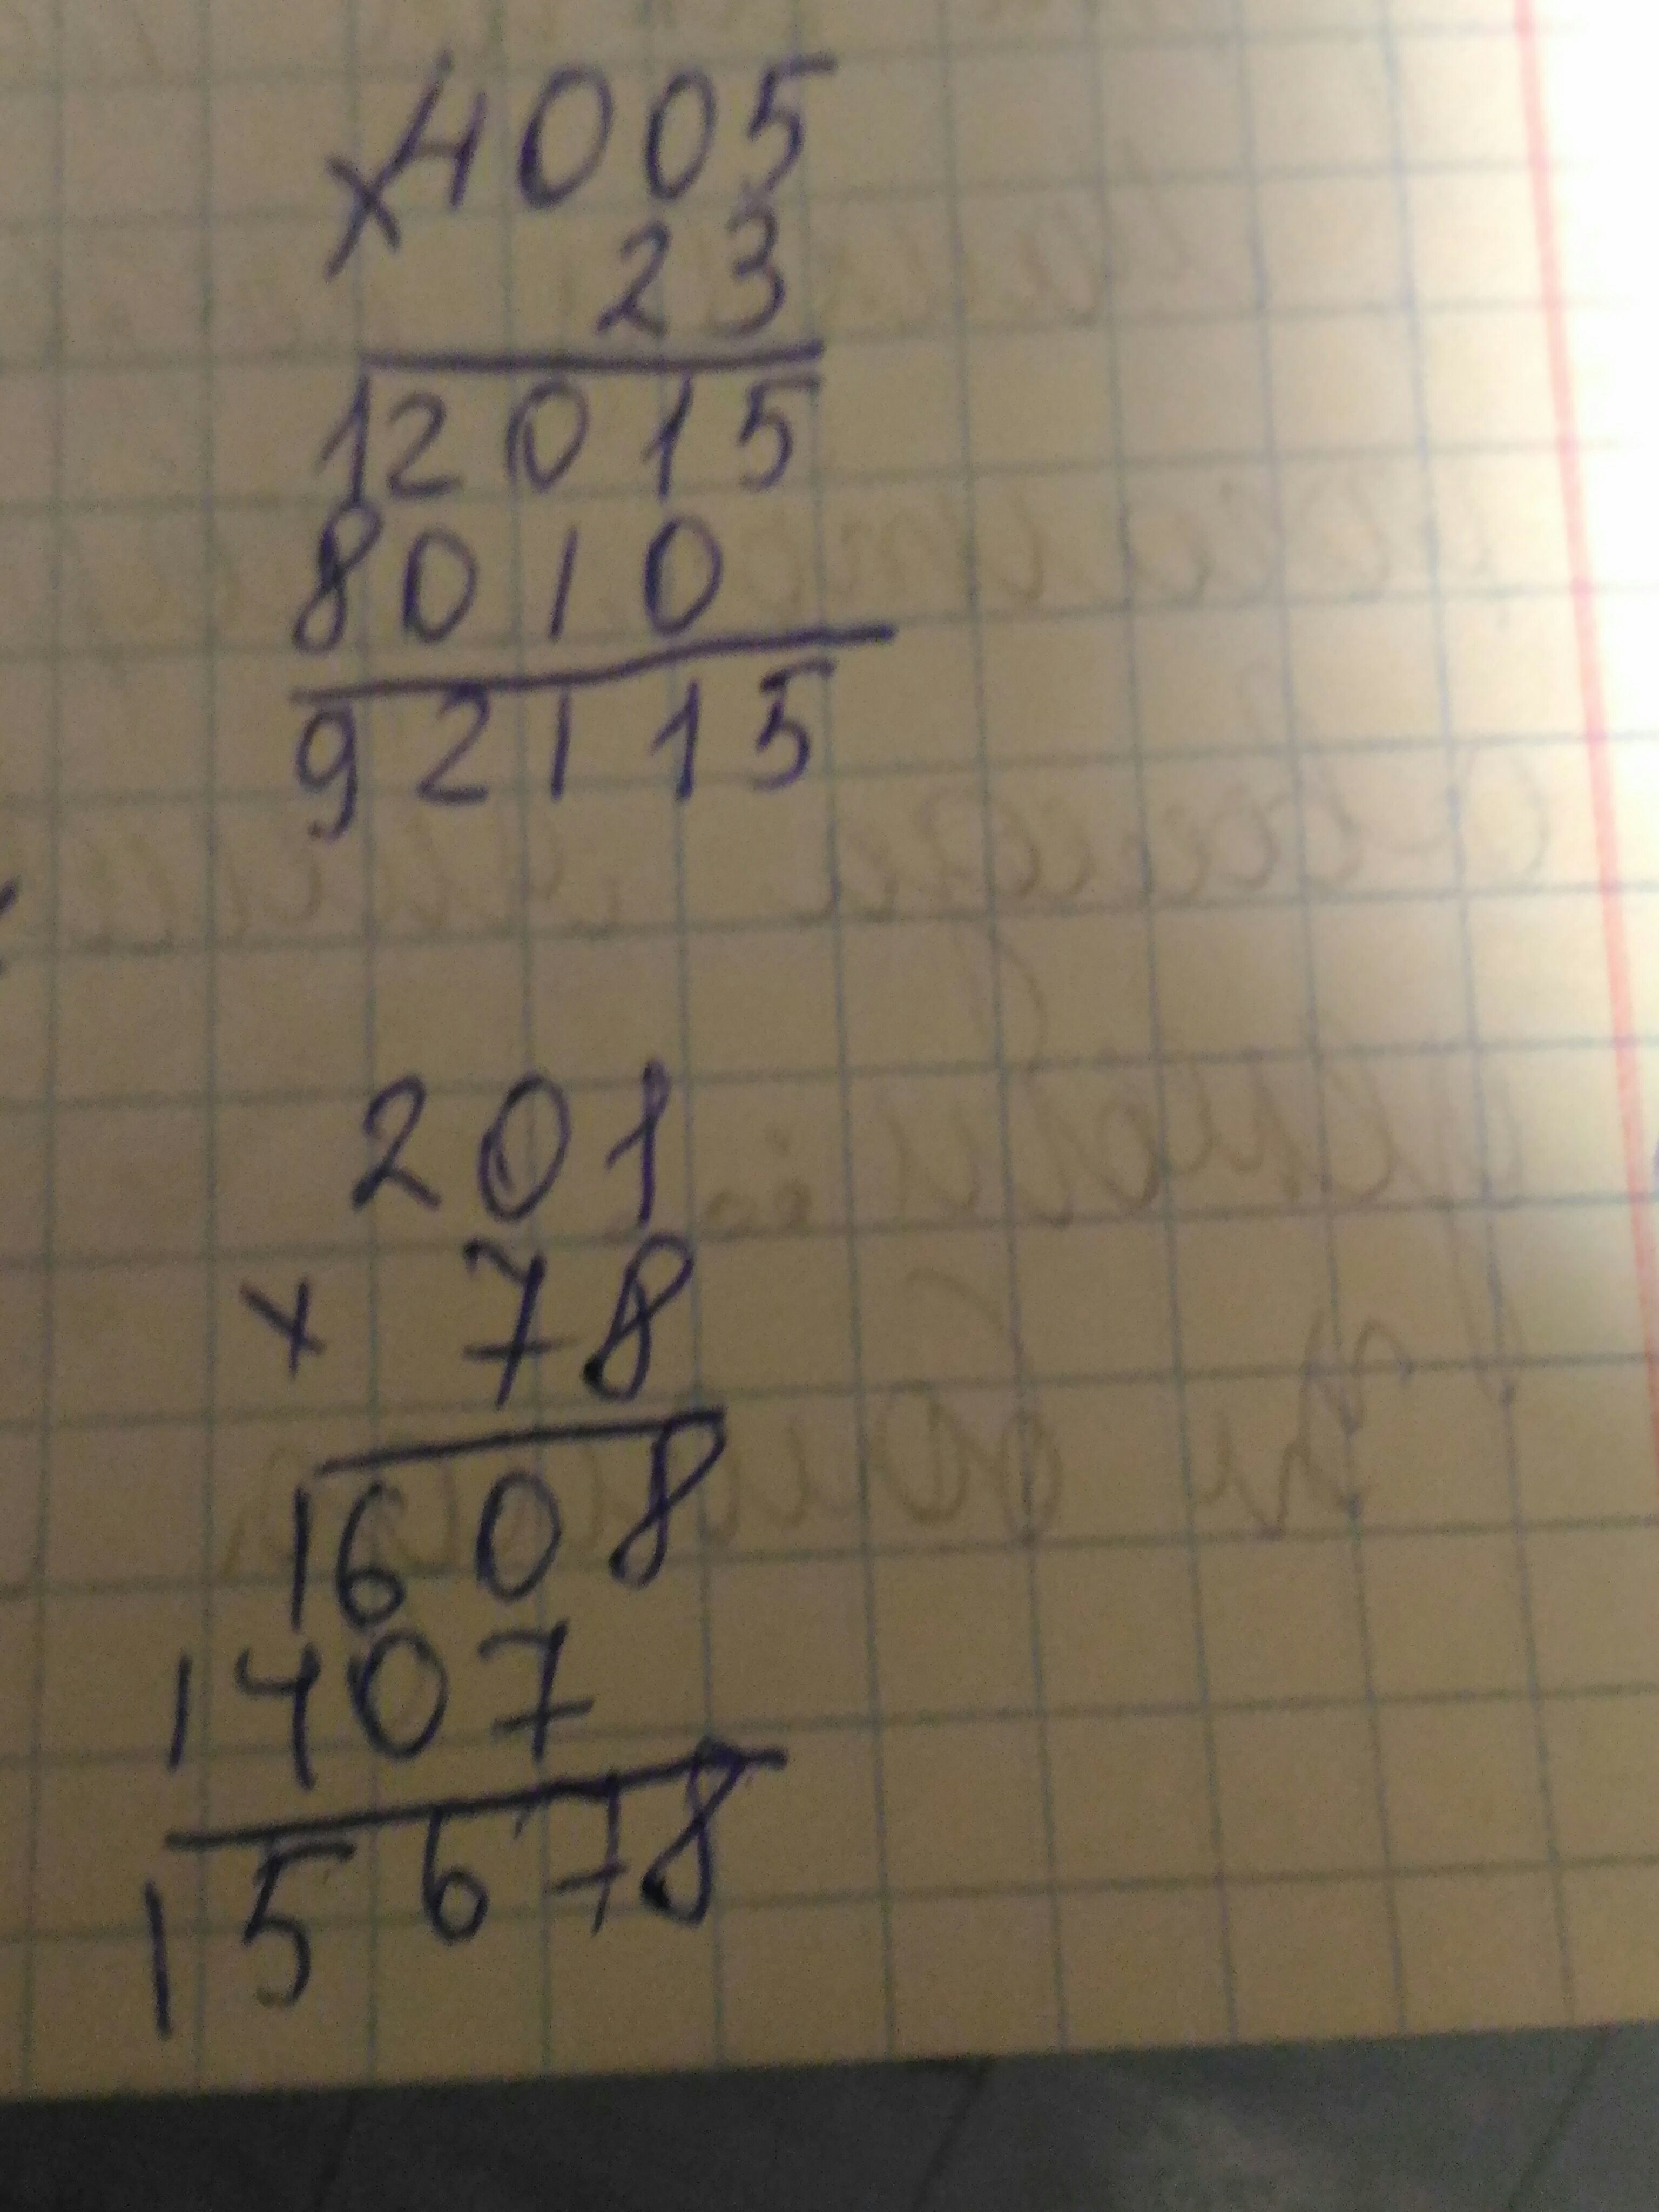 ×4005
23
12015
8010
92115
201
× 78
1608
1407
15678